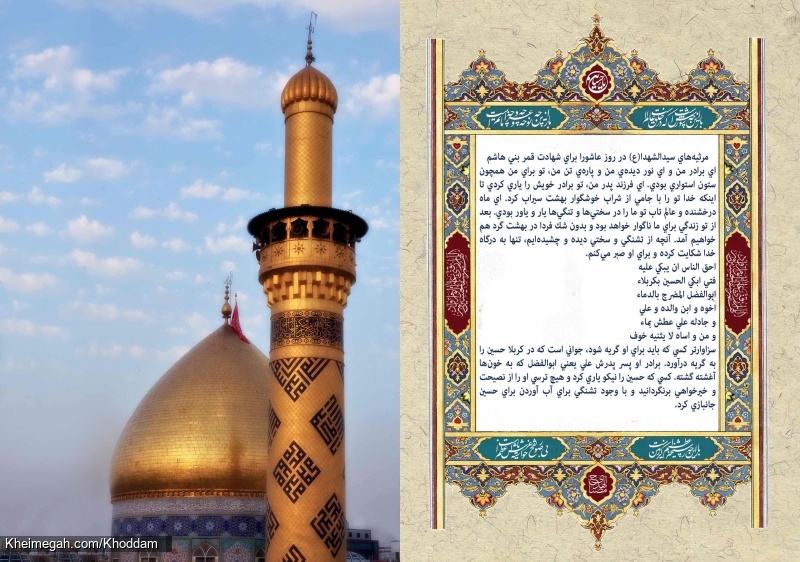 مرثيه‌هاي سيدالشهدا(ع) در روز عاشورا براي شهادت قمر بني هاشم
اي برادر من و اي نور ديده‌ي من و پاره‌ي تن من، تو براي من همچون
ستون استواري بودي. اي فرزند پدر من، تو برادر خويش را ياري كردي تا
اينكه خدا تو را با جامي از شراب خوشگوار بهشت سيراب كرد. اي ماه
درخشنده و عالم تاب تو ما را در سختي‌ها و تنگي‌ها يار و ياور بودي. بعد
از تو زندگي براي ما ناگوار خواهد بود و بدون شك فردا در بهشت گرد هم
خواهيم آمد. آنچه از تشنگي و سختي ديده و چشيده‌ايم، تنها به درگاه
خدا شكايت كرده و براي او صبر مي‌كنم.
احق الناس ان يبكي عليه
فتي ابكي الحسين بكربلاء
ابوالفضل المضرج بالدماء
اخوه و ابن والده و علي
و جادله علي عطش بماء
و من و اساه لا يثنيه خوف
سزاوارتر كسي كه بايد براي او گريه شود، جواني است كه در كربلا حسين را
به گريه درآورد. برادر او پسر پدرش علي يعني ابوالفضل كه به خون‌ها
آغشته گشته. كسي كه حسين را نيكو ياري كرد و هيچ ترسي او را از نصيحت
و خيرخواهي برنگردانيد و با وجود تشنگي براي آب آوردن براي حسين
جانبازي كرد.
Kheimegah.com/Khoddam